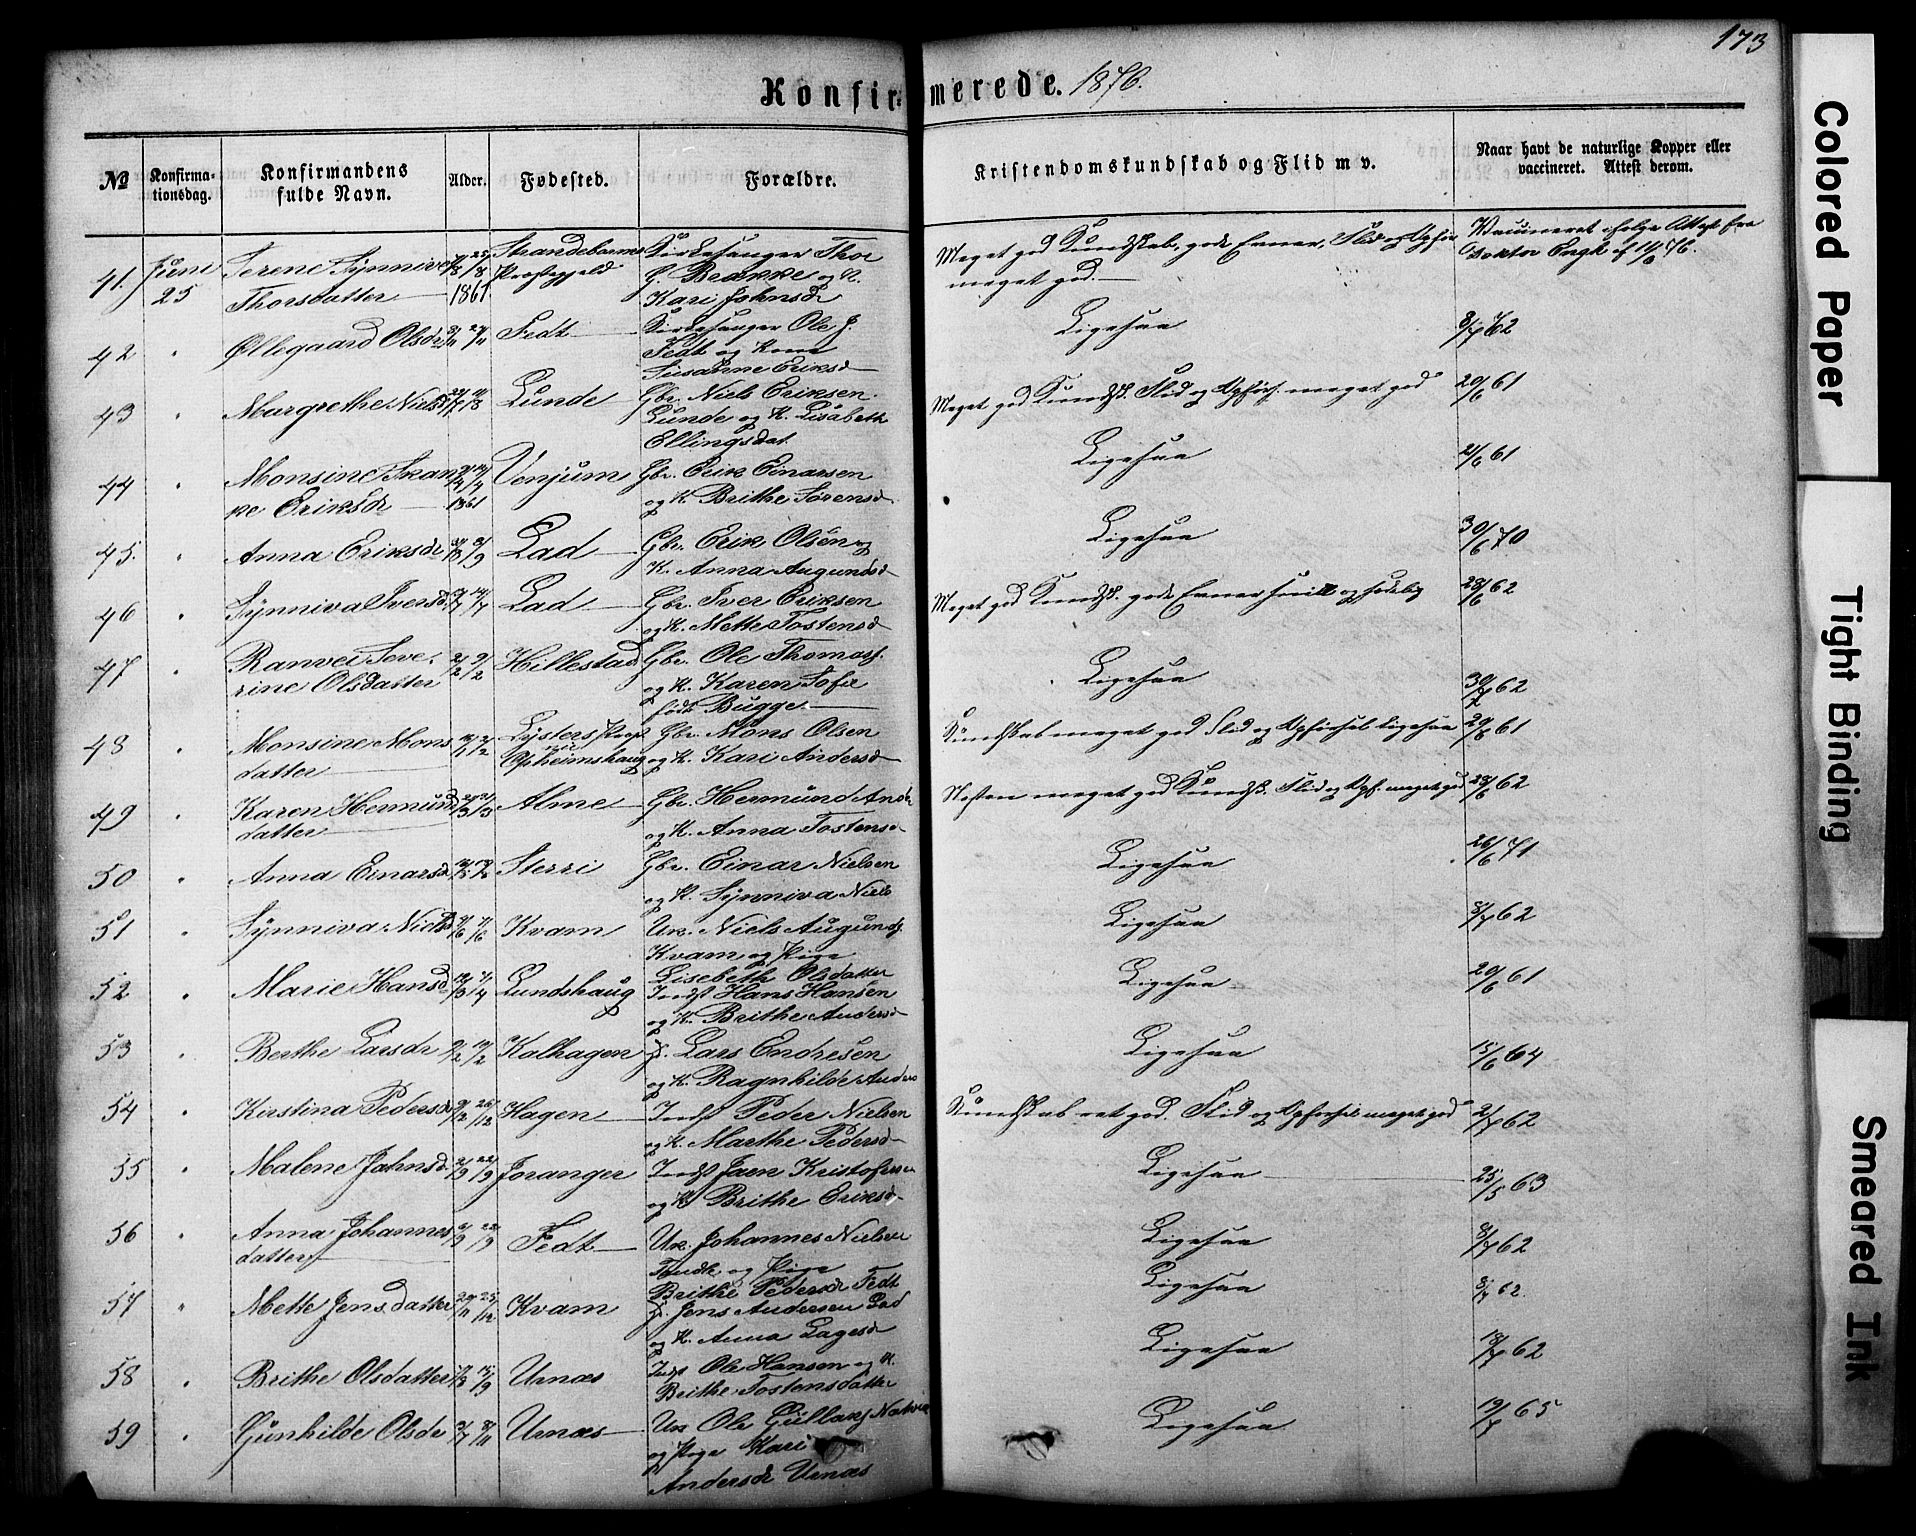 173
Konfirmerede. 1876.
No
Konfirma-
tionsdag.
Konfirmandens
fulde Navn.
Alder.
Fødested.
Forældre.
Kristendomskundskab og Flid m v.
Naar havt de naturlige Kopper eller
vaccineret. Attest derom.
41. Juni 25 Serene Synniva Thorsdatter 1861 Strandebarms Præstegjeld Kirkesanger Thor G. Brække og K. Kari Johnsdr Meget god Kundskab, gode Evner, Flid og Opførs meget god. Vaccineret ifølge Attest fra Doktor Engh af 14/6 76.
42 " Øllegaard Olsdr Fedt Kirkesanger Ole J. Fedt og Kone Susanne Eriksd Ligesaa 8/7 62
43 " Margrethe Nielsd Lunde Gbr. Niels Eriksen Lunde og K. Lisabeth Ellingsdat. Meget god Kundsk. Flid og Opførs. meget god 20/6 61
44 " Monsine Skanke Eriksdr 1861 Venjum Gbr. Erik Einarsen og K. Brithe Sørensd Ligesaa 2/6 61
45. " Anna Eriksdr Lad Gbr. Erik Olsen og K. Anna Augundsd Ligesaa 30/6 70
46 " Synniva Iversd Lad Gbr. Iver Eriksen og K. Mette Tostensd Meget god Kundsk. gode Evner snill og sædelig 28/6 62
47 " Ranvei Severine Olsdatter 2/2 Hillestad Gbr. Ole Thomass. og K. Karen Sofie født Bugge Ligesaa 30/7 62
48 " Monsine Monsdatter Lysters Præst Opheimshaug Gbr. Mons Olsen og K. Kari Andersd Kundskab meget god Flid og Opførsel ligesaa 20/6 61
49 " Karen Hermundsdatter Alme Gbr. Hermund And og K. Anna Tostensd Næsten meget god Kundsk. Flid og Opf. meget god 28/6 62
50 " Anna Einarsd Sterri Gbr. Einar Nielsen og K. Synniva Niels Ligesaa 26/6 71
51 " Synniva Nielsd Kvam Un. Niels Augunds. Kvam og Pige Lisebeth Olsdatter Ligesaa 8/7 62
52 " Marie Hansd Lundshaug Indst Hans Hansen og K. Brithe Andersd Ligesaa 20/6 61
53 " Berthe Larsdr Kalhagen Lars Endresen og K. Ragnhilde Anders Ligesaa 15/6 64
54 " Kirstina Pedersd Hagen Indst Peder Nielsen og K. Marthe Pedersd Kundskab ret god. Flid og Opførsel meget god 2/7 62
55 " Malene Jahnsd Joranger Indst Jaen Kristofersen og K. Brithe Eriksd Ligesaa 25/5 63
56 " Anna Johannesdatter Fedt Un. Johannes Nielsen og Pige Brithe Pedersdr Fedt Ligesaa 8/7 62
57 " Mette Jensdatter Kvam Jens Andersen Lad og K. Anna Lagesd Ligesaa 8/7 62.
58 " Brithe Olsdatter Urnæs Indst Ole Hansen og K. Brithe Tostensdatter Ligesaa 18/7 62
59 " Gunhilde Olsdr Urnæs Un Ole og Pige Kari Andersdr Urnæs Ligesaa 19/7 65
Colored Paper
Tight Binding
Smeared Ink